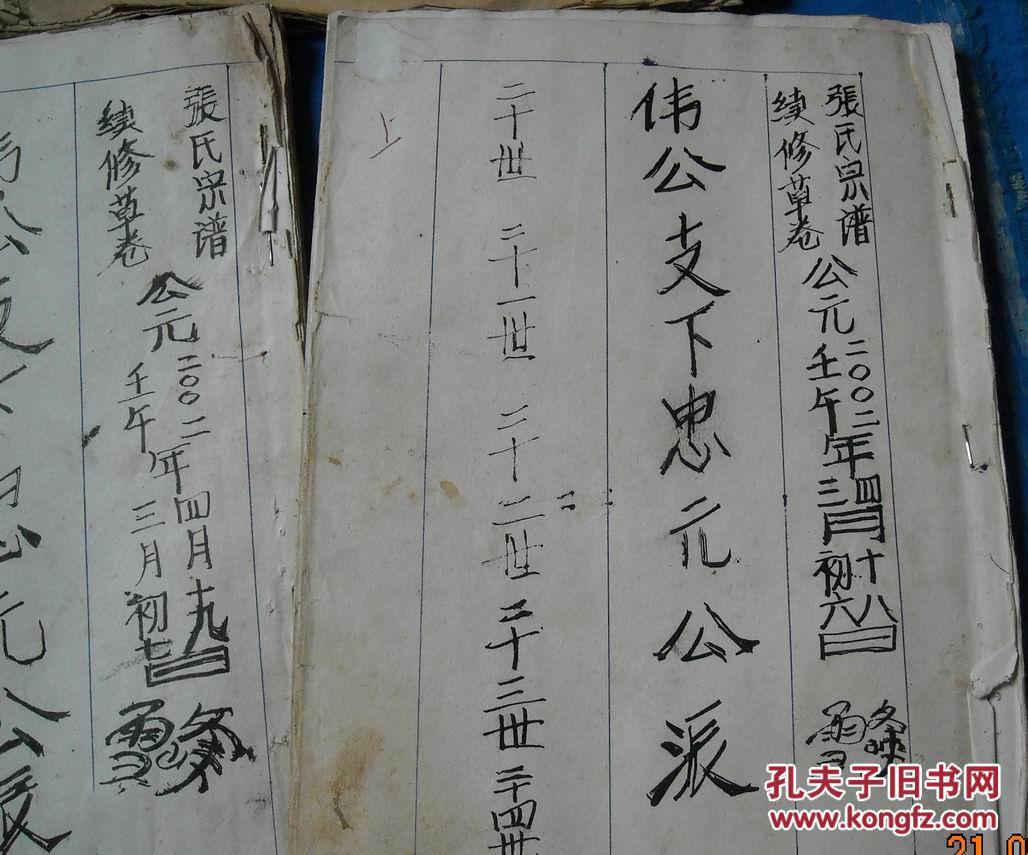 張氏宗谱
续修草卷
公元二〇〇二年四月十八日
壬午 三月初六日
伟公支下忠元公派
二十世 二十一世 二十二世 二十三世 二十四世
上
張氏宗谱
续修草卷
公元二〇〇二年四月十九日
壬午年三月初七日
忠元公派
孔夫子旧书网
www.kongfz.com
21.0